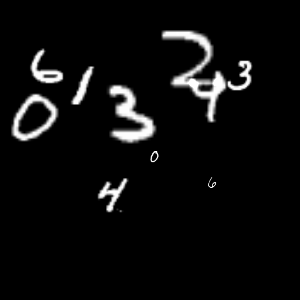 6 1 2 3
0 3 4
0
4 6